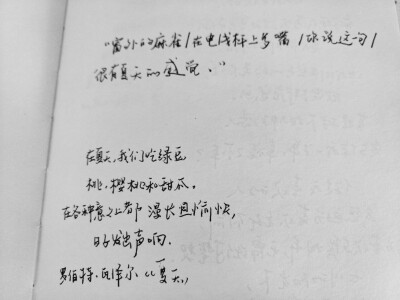 "窗外的麻雀/在电线杆上多嘴/你说这句/
很有夏天的感觉."
在夏天,我们吃绿豆
桃,樱桃和甜瓜,
在各种意义上都漫长且愉快,
日子发出声响.
罗伯特·瓦泽尔《夏天》